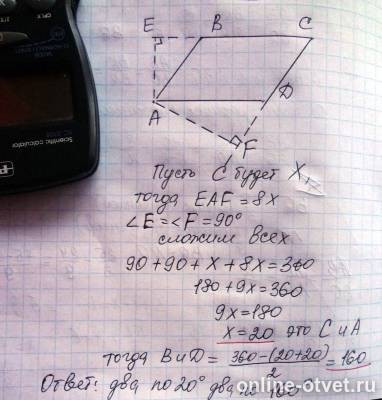 E B C
A D
F
Пусть C будет X,
тогда EAF = 8x
∠E = ∠F = 90°
сложим всех
90 + 90 + x + 8x = 360
180 + 9x = 360
9x = 180
x = 20 это C и A
тогда B и D = 360-(20+20)/2 = 160
Ответ: два по 20° два по 160
online-otvet.ru
Scientific calculator